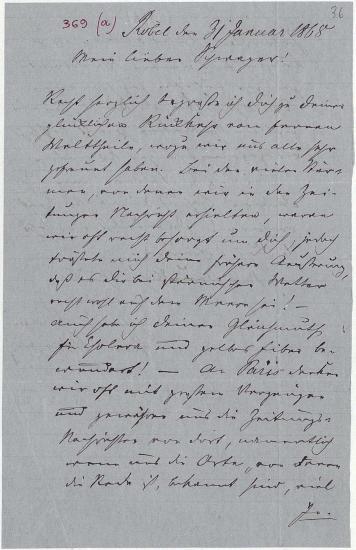 369 (a)
36
Röbel den 31 Januar 1868
Mein lieber Schwager!
Recht herzlich begrüße ich Dich zu Deiner
glücklichen Rückkehr vom fernen
Welttheile, wozu wir uns alle sehr
gefreut haben. Bei den vielen Stür-
men, von denen wir in den Zei-
tungen Nachricht erhielten, waren
wir oft recht besorgt um Dich, jedoch
tröstete mich Deine frühere Aeußerung
daß es Dir bei stürmischem Wetter
recht wohl auf dem Meere sei! —
Auch habe ich Deinen Gleichmuth
für Cholera und gelbes Fieber be-
wundert! — An Paris denken
wir oft mit großem Vergnügen
und gewähren uns die Zeitungs-
Nachrichten von dort, namentlich
wenn uns die Orte, von denen
die Rede ist, bekannt sind, viel